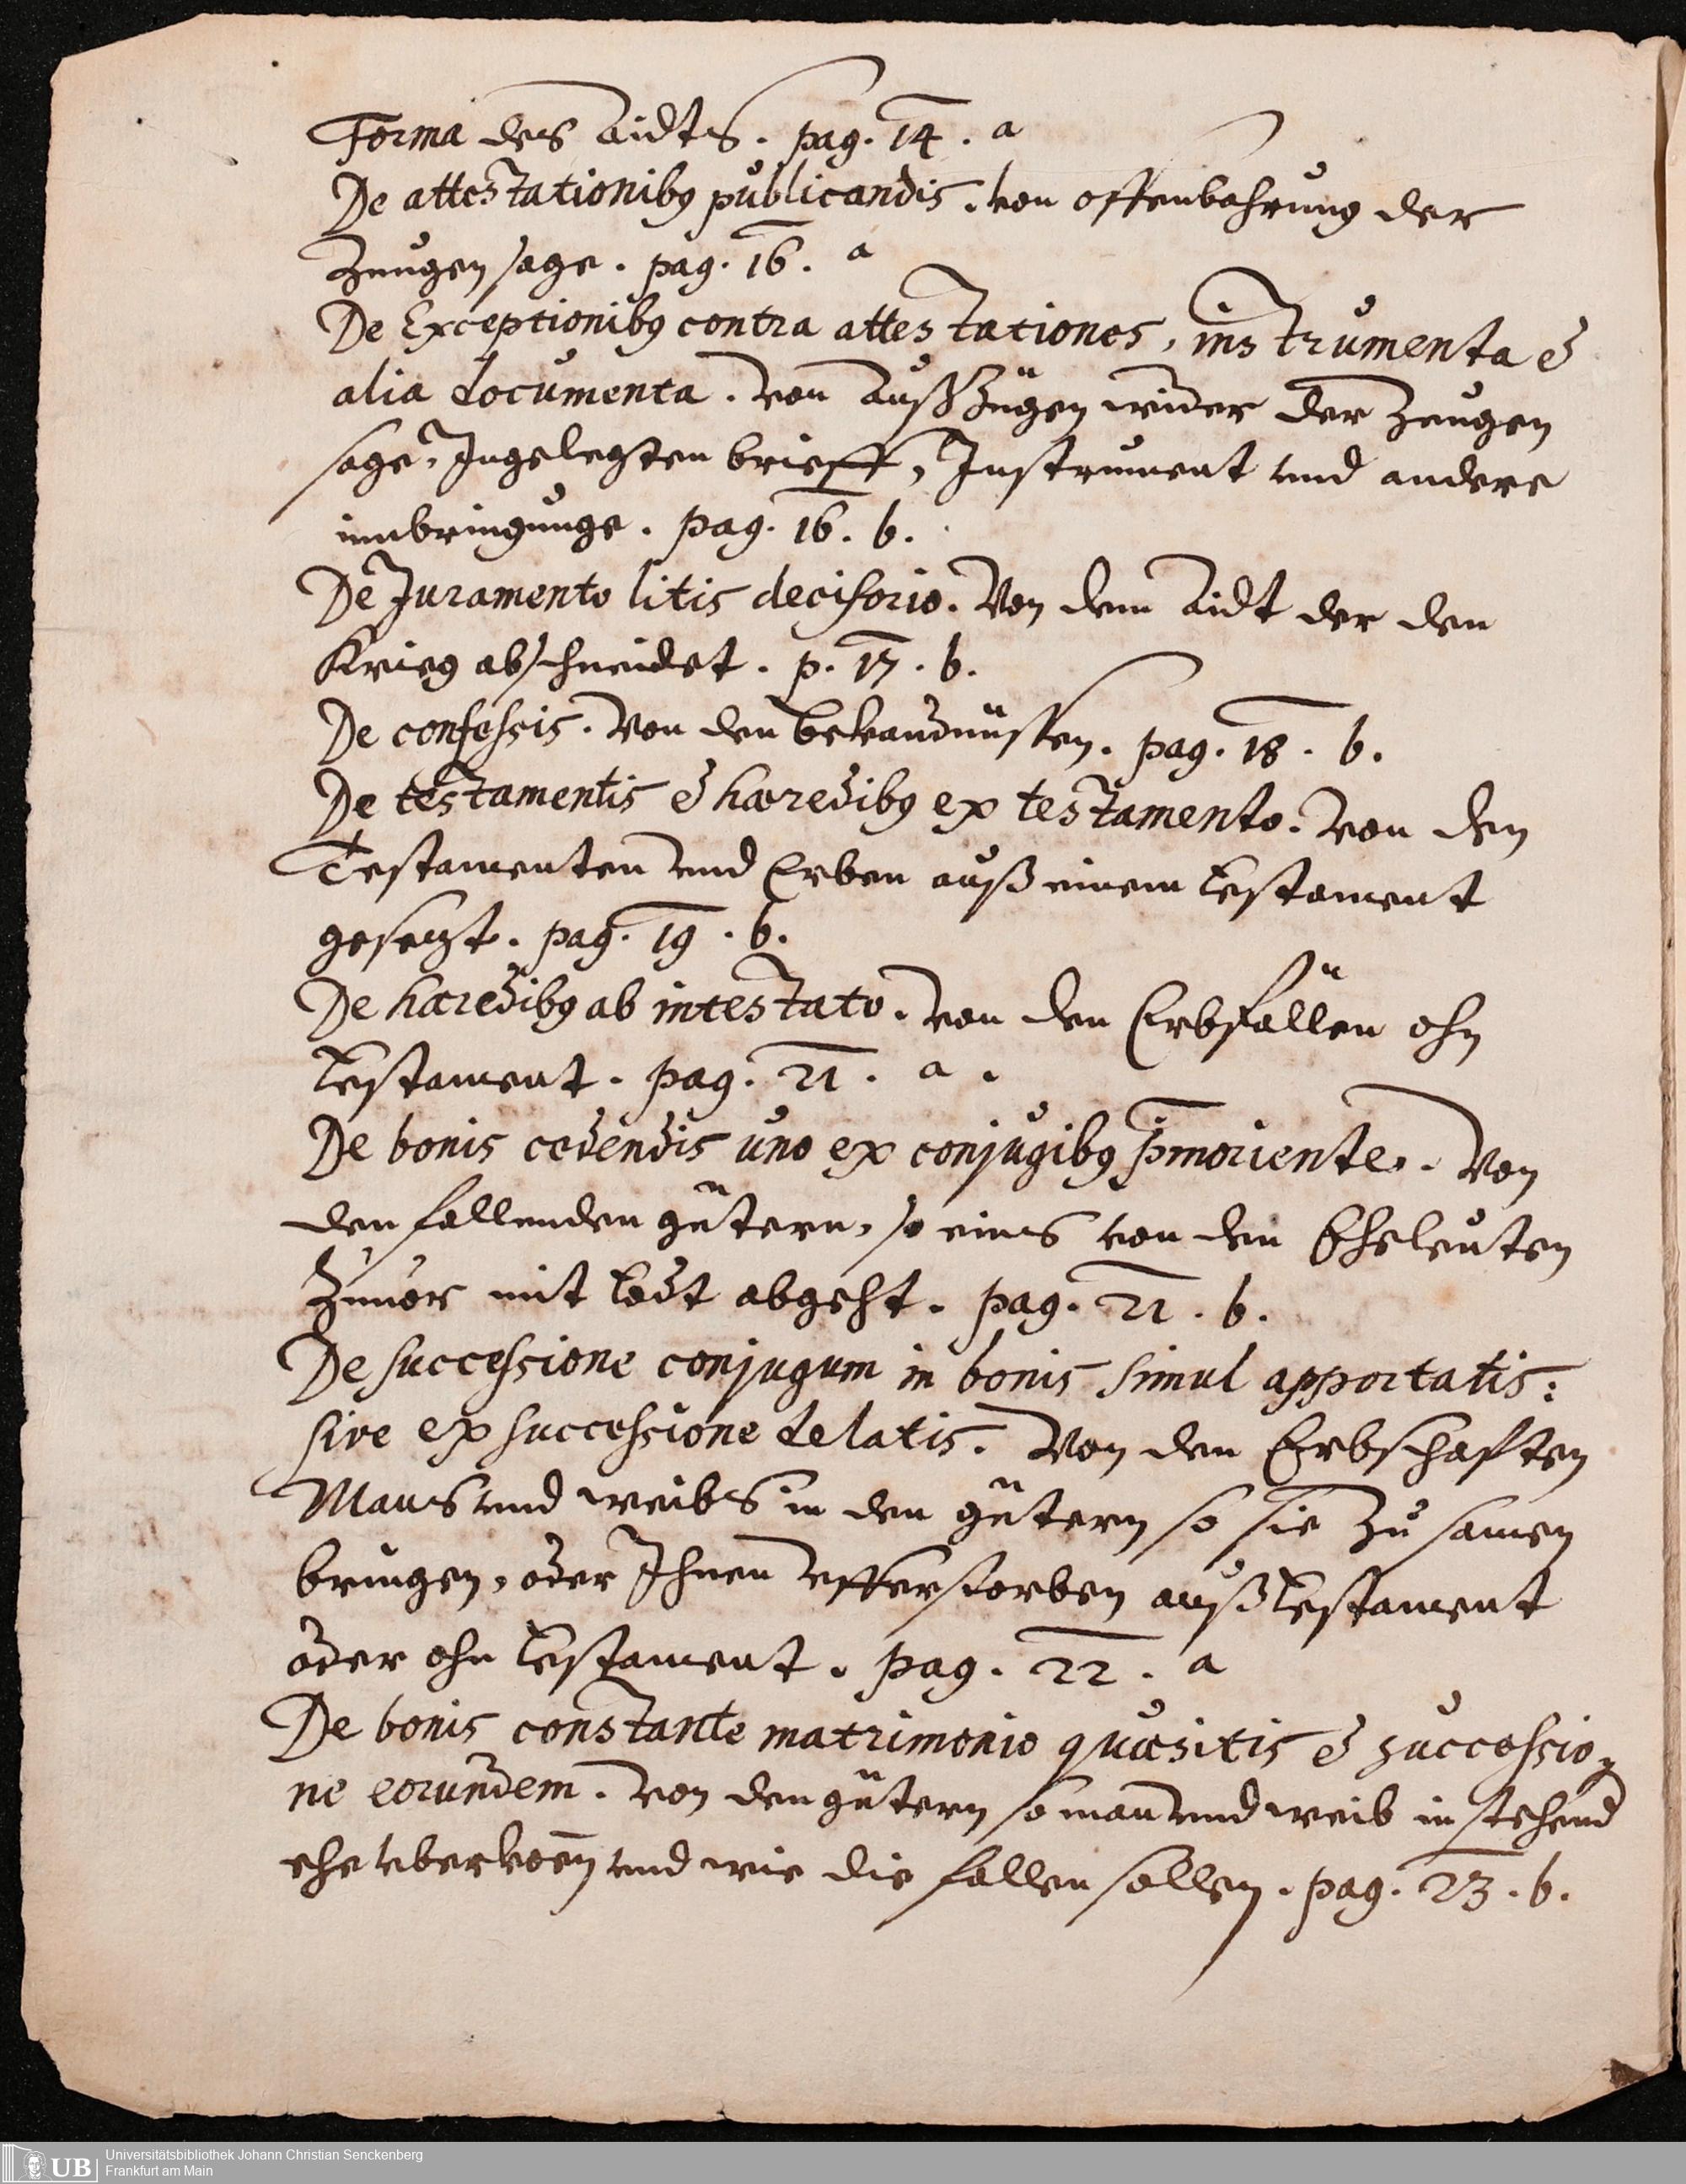 Forma des Aidts. pag. 14. a
De attestationibꝯ publicandis. von offenbahrung der
Zeugen sage. pag. 16. a
De Exceptionibꝯ contra attestationes, instrumenta &
alia documenta. von Außzügen wider der Zeugen
sage, Ingelegten brieff, Instrument und andere
innbringunge. pag. 16. b.
De Juramento litis decisorio. Von dem Aidt der den
Krieg abschneidet. p. 17. b.
De confessis. Von den bekandnüssen. pag. 18. b.
De testamentis & hæredibꝯ ex testamento. Von den
Testamenten und Erben auß einem testament
gesetzt. pag. 19. b.
De hæredibꝯ ab intestato. Von den Erbfällen ohn
testament. pag. 21. a.
De bonis cedendis uno ex conjugibꝯ p̄moriente. Von
den fallenden gütern, so eins von den Eheleuten
Zuuor mit todt abgeht. pag. 21. b.
De successione conjugum in bonis simul apportatis:
sive ex successione delatis. Von den Erbschafften
Mans und weibs in den gütern so sie zu samen
bringen, oder Ihnen vfferstorben auß testament
oder ohn testament. pag. 22. a
De bonis constante matrimonio quæsitis & successio⸗
ne eorundem. Von den gütern so man und weib in stehend
ehe vberkoēn und wie die fallen sollen. pag. 23. b.
Universitätsbibliothek Johann Christian Senckenberg
UB Frankfurt am Main